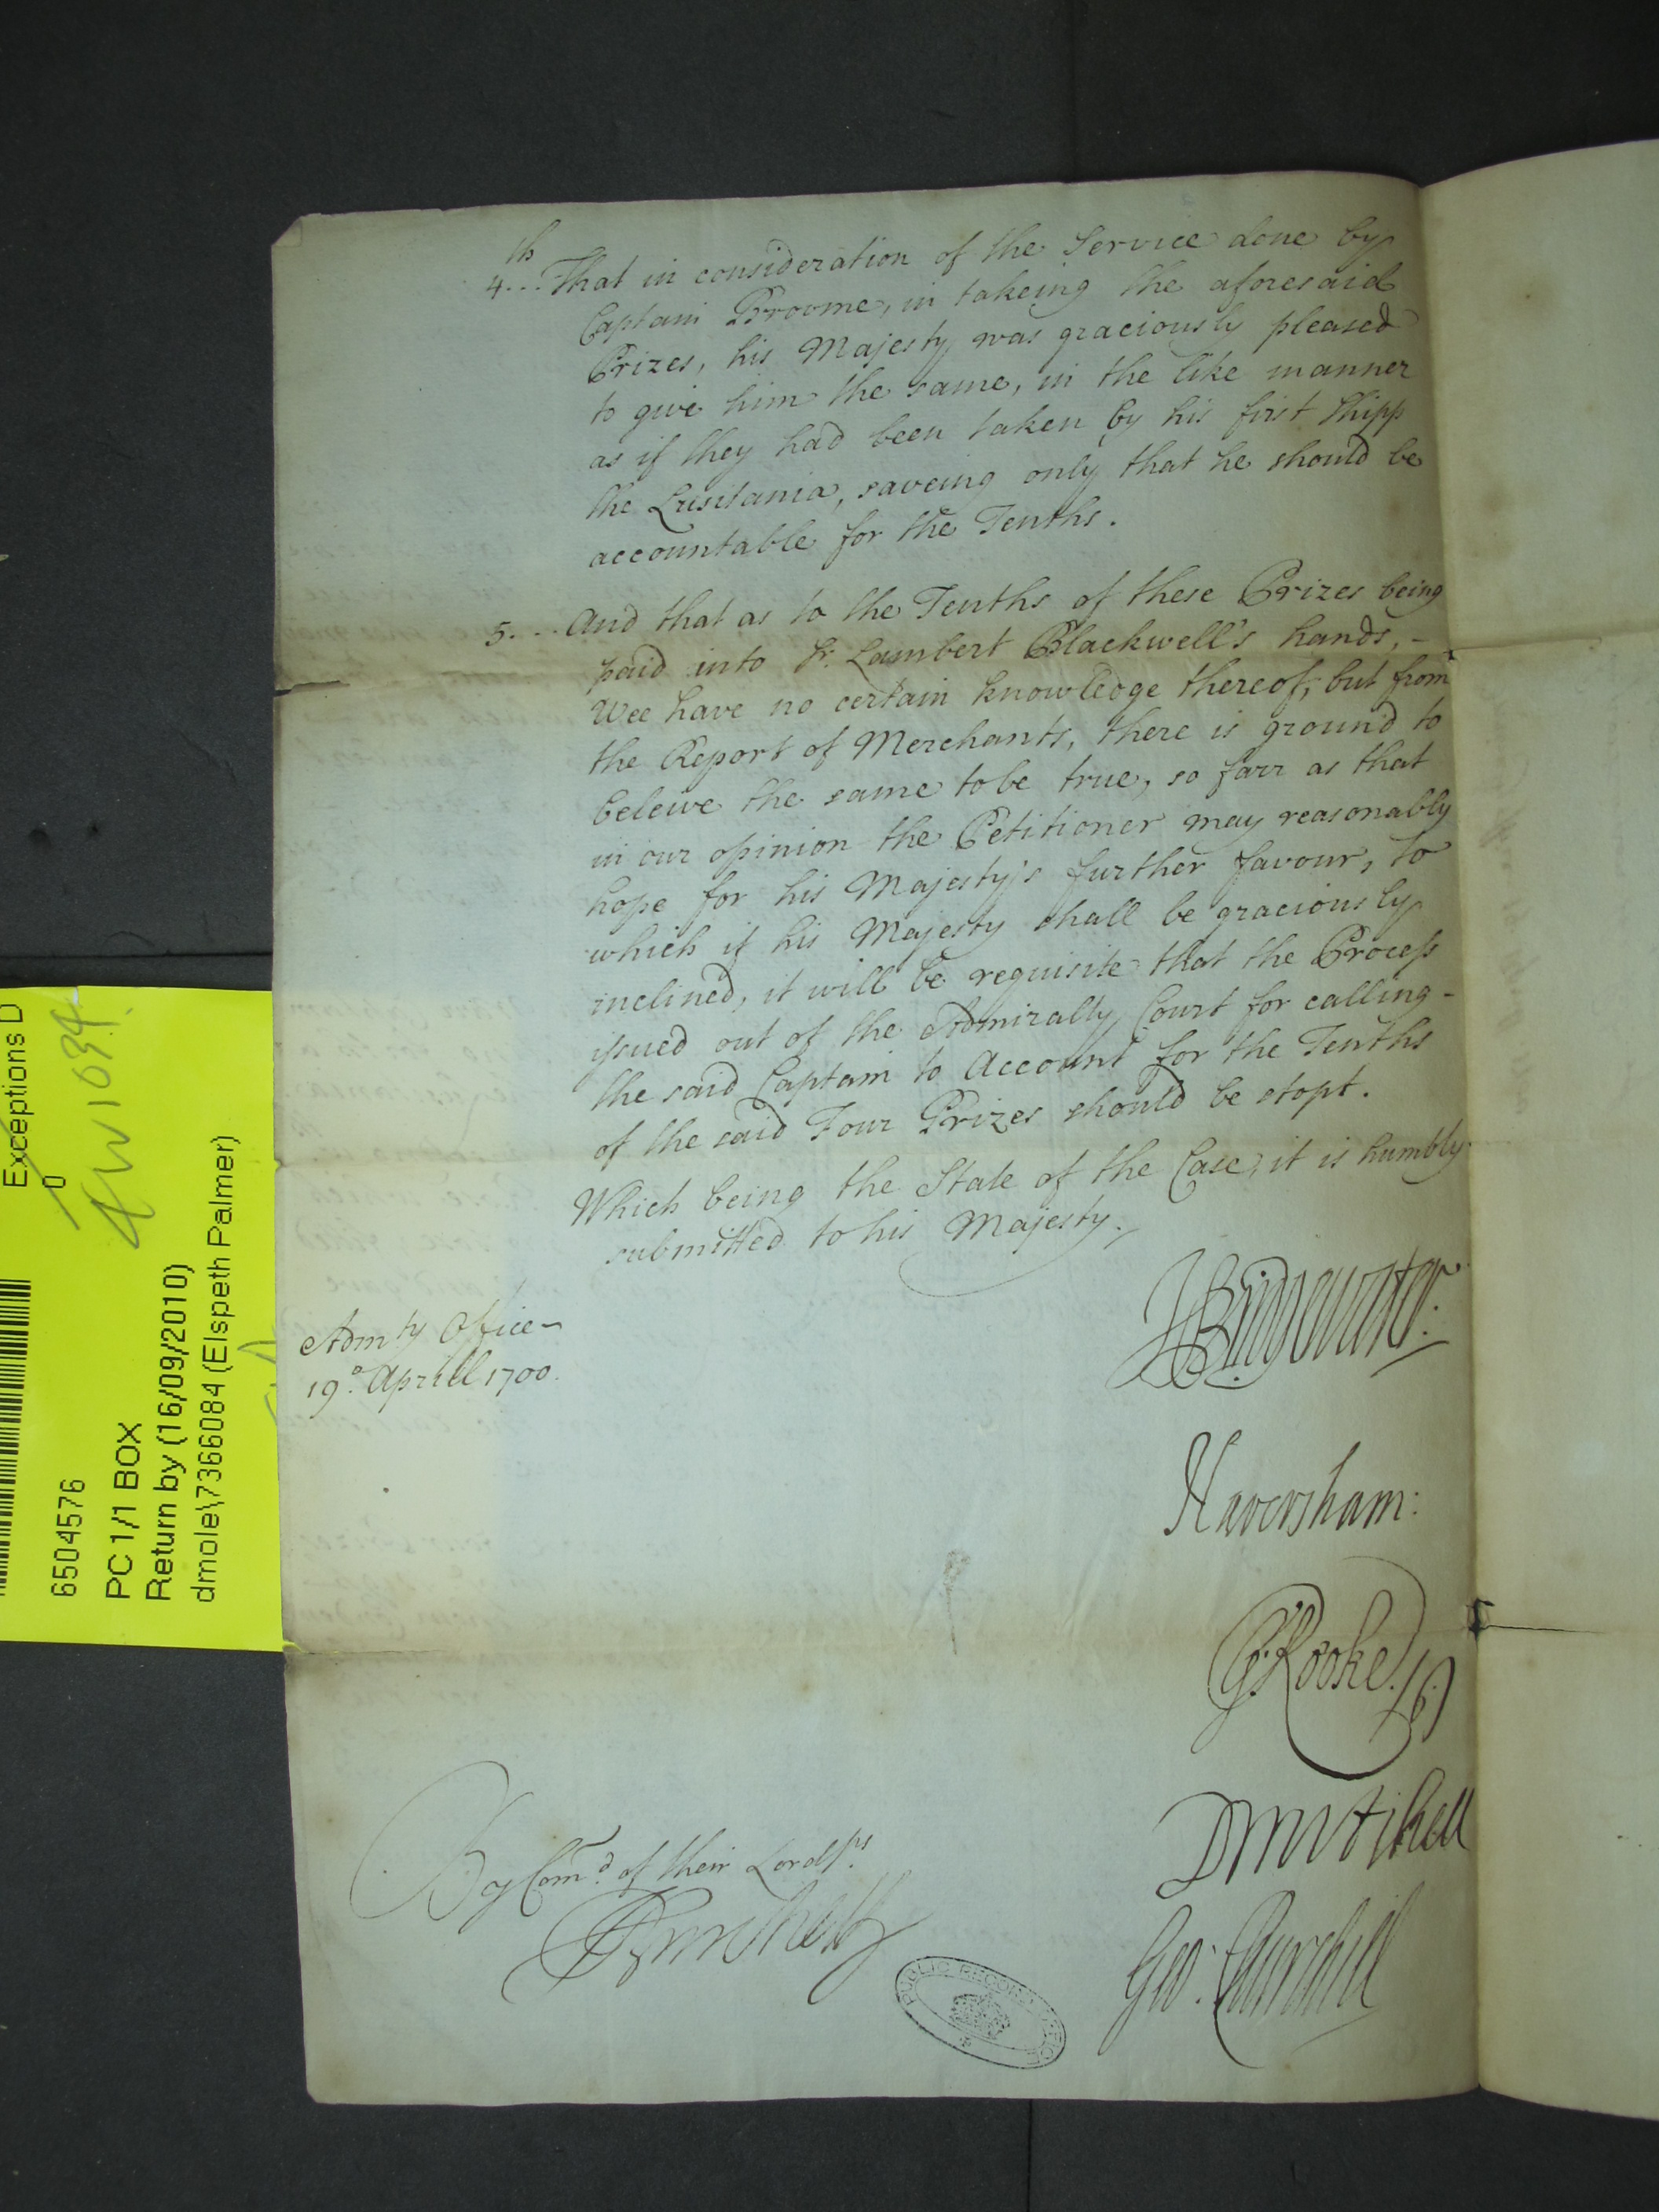 4th.. That in consideration of the Service done by
Captain Broome, in takeing the aforesaid
Prizes, his Majesty was graciously pleased
to give him the same, in the like manner
as if they had been taken by his first Shipp
the Lusitania, saveing only that he should be
accountable for the Tenths.
5... And that as to the Tenths of these Prizes being
paid into Sr. Lambert Blackwell's hands, -
Wee have no certain knowledge thereof, but from
the Report of Merchants, there is ground to
beleive the same to be true, so farr as that
in our opinion the Petitioner may reasonably
hope for his Majesty's further favour, to
which if his Majesty shall be graciously
inclined, it will be requisite that the Process
issued out of the Admiralty Court for calling -
the said Captain to Account for the Tenths
of the said Four Prizes should be stopt.
Which being the State of the Case, it is humbly
submitted to his Majesty.
Admty Office -
19o. Aprill 1700.
JBridgewater.
Haversham:
G:Rooke.
DMitchell
Geo: Churchill
By Comd. of their Lordps.
PUBLIC RECORD OFFICE
Exceptions D
0
AW1034
6504576
PC 1/1 BOX
Return by (16/09/2010)
dmole\7366084 (Elspeth Palmer)